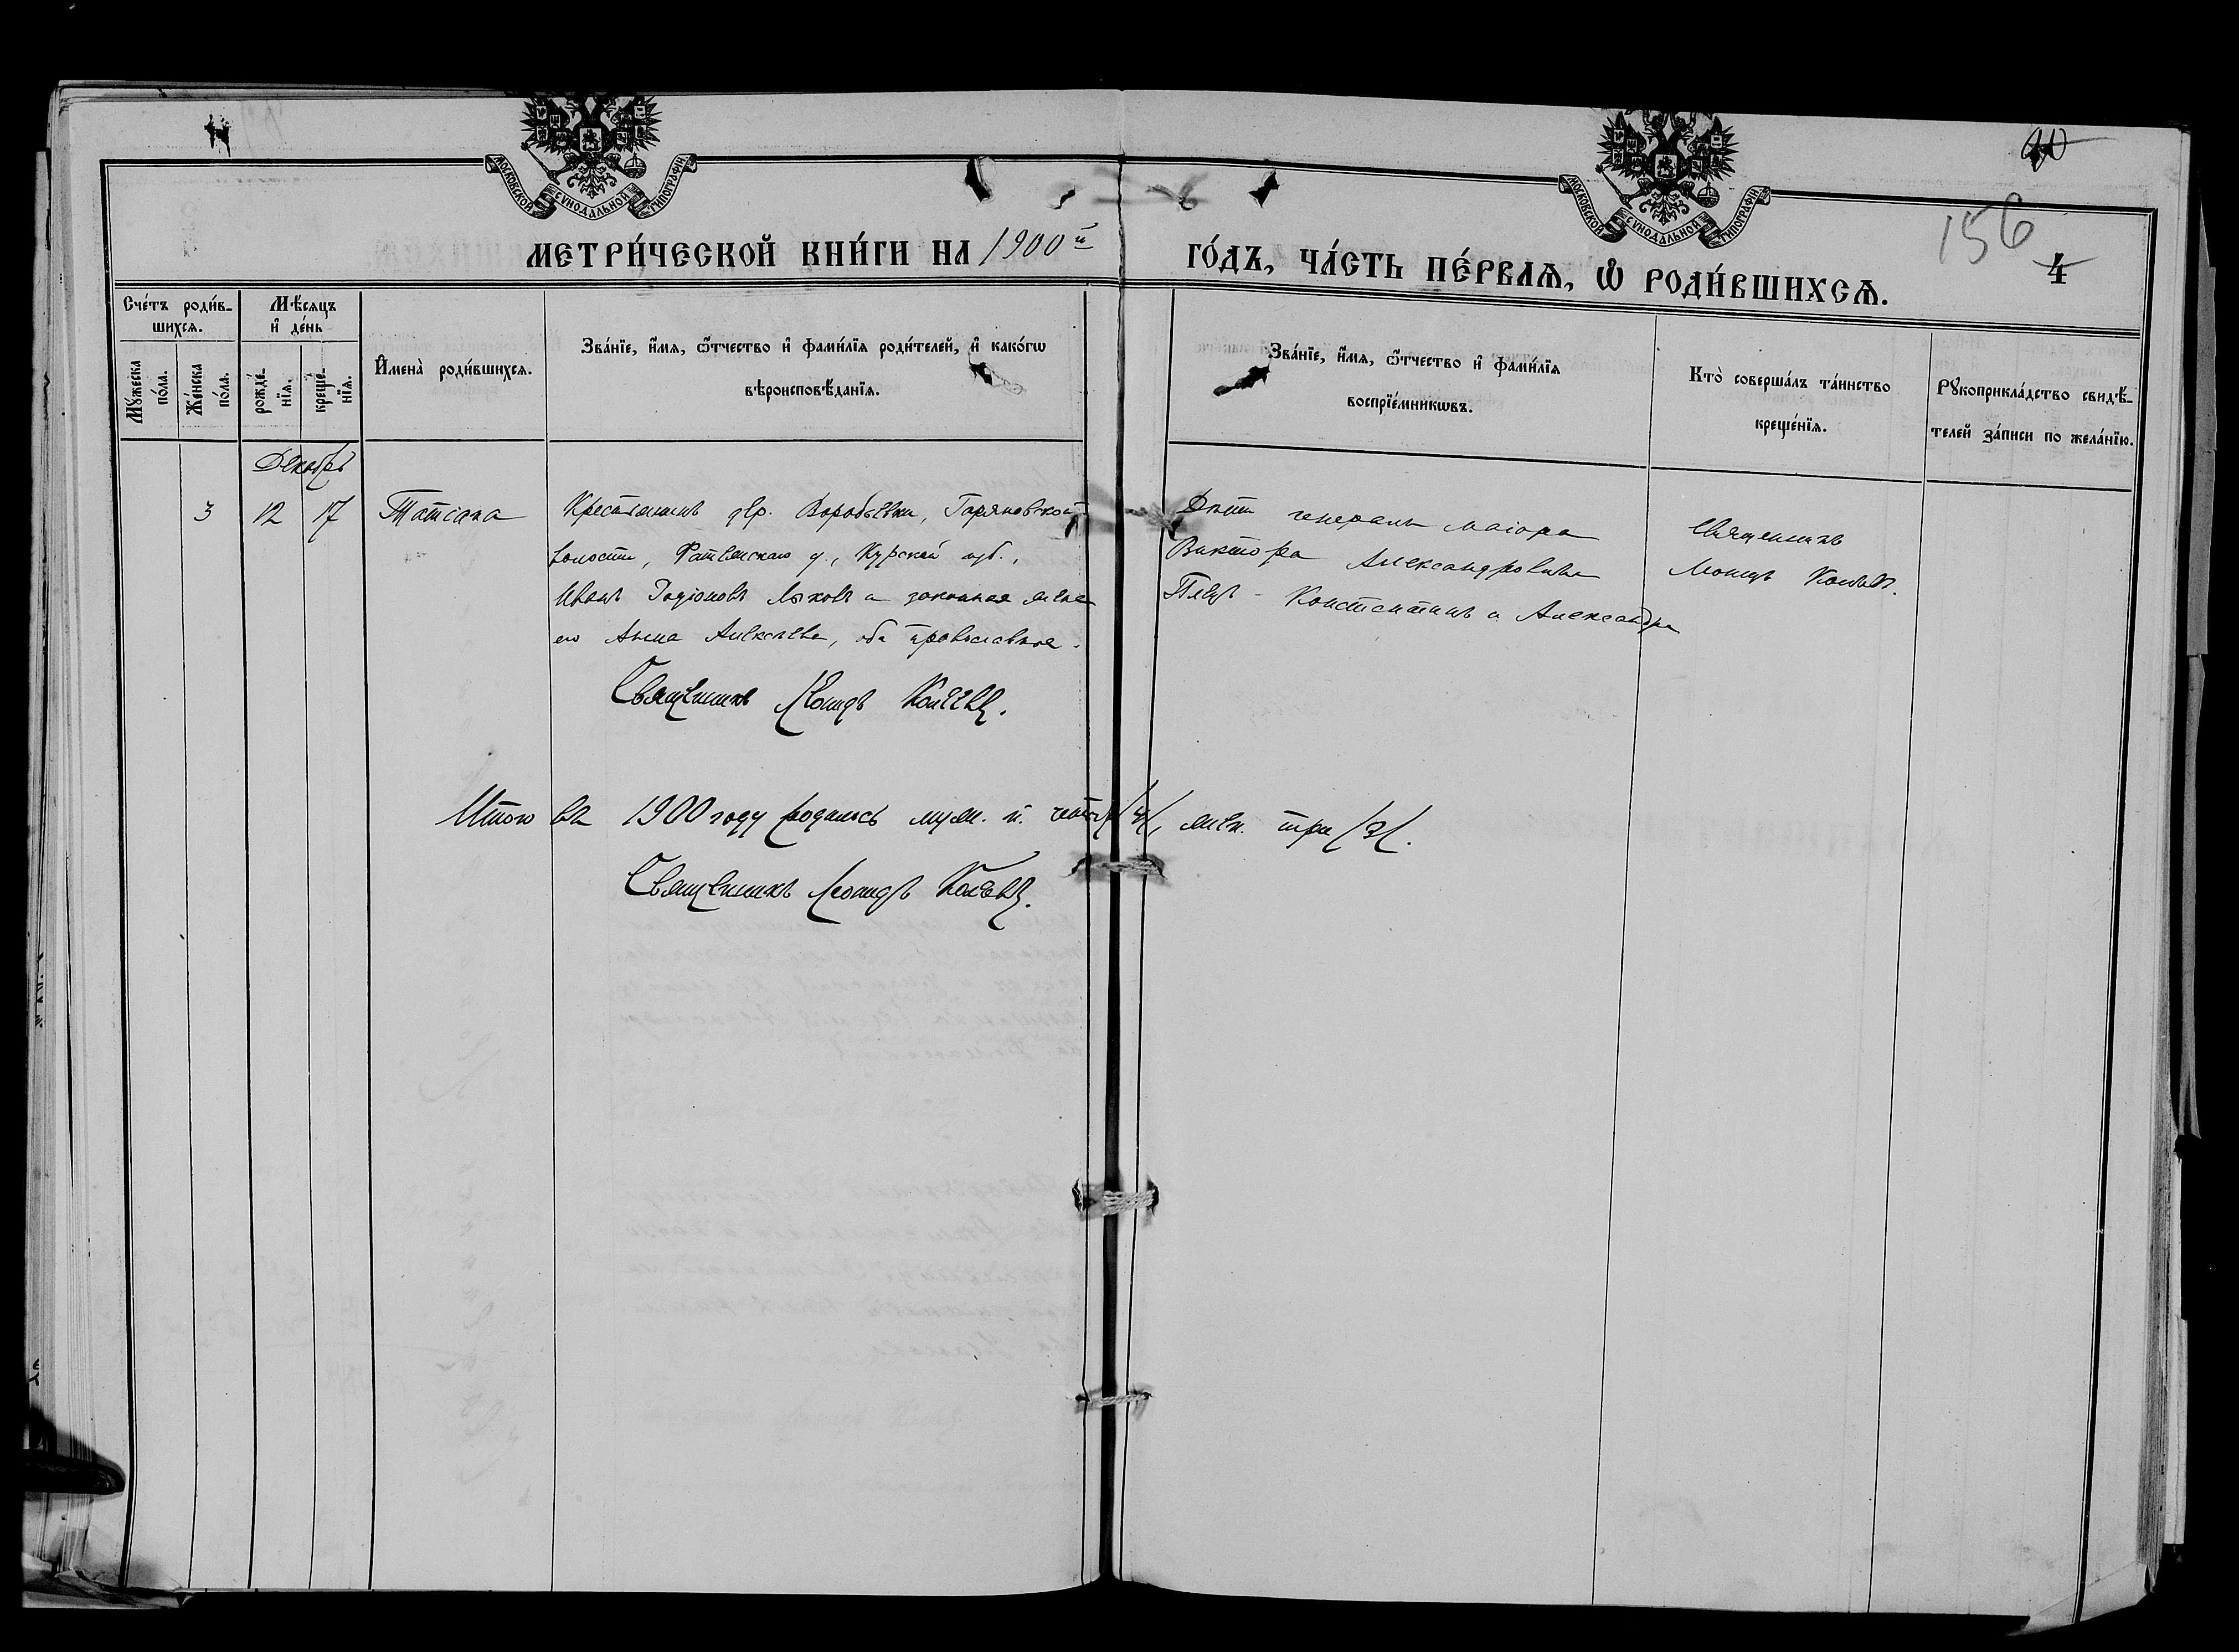 МОСКОВСКОЙ СѴНОДАЛЬНОЙ ТИПОГРАФІИ
МОСКОВСКОЙ СѴНОДАЛЬНОЙ ТИПОГРАФІИ
156
4
МЕТРИ́ЧЕСКОЙ КНИ́ГИ НА 1900й
ГО́ДЪ, ЧА́СТЬ ПЕ́РВАѦ, Ѡ҆ РОДИ́ВШИХСѦ.
Сче́тъ роди́в-
шихсѧ.
Мꙋ́жеска по́ла.
Же́нска по́ла.
Мѣ́сѧцъ
и҆ де́нь
рожде́-нїѧ.
креще́-нїѧ.
И҆мена̀ роди́вшихсѧ.
Зва́нїе, и҆́мѧ, ѻ҆́тчество и҆ фами́лїѧ роди́телей, и҆ како́гѡ
вѣроисповѣ́данїѧ.
Зва́нїе, и҆́мѧ, ѻ҆́тчество и҆ фами́лїѧ
воспрїе́мникѡвъ.
Кто̀ соверша́лъ та́инство
креще́нїѧ.
Рꙋкоприкла́дство свидѣ́-
телей за́писи по жела́нїю.
Декабрь
3 12 17 Татіана
Крестьянинъ дер. Воробьевки,
волости, у., Курской губ.,
Иванъ Родіоновъ Лыковъ и законная жена
его Анна Алексѣева, оба православные.
Священникъ Леонидъ Колчевъ.
Дѣти генералъ маіора
Виктора Александровича
Константинъ и Александра
Священникъ
Леонидъ Колчевъ.
Итого въ 1900 году родилось муж. п. четыре /4/, жен. три /3/.
Священникъ Леонидъ Колчевъ.